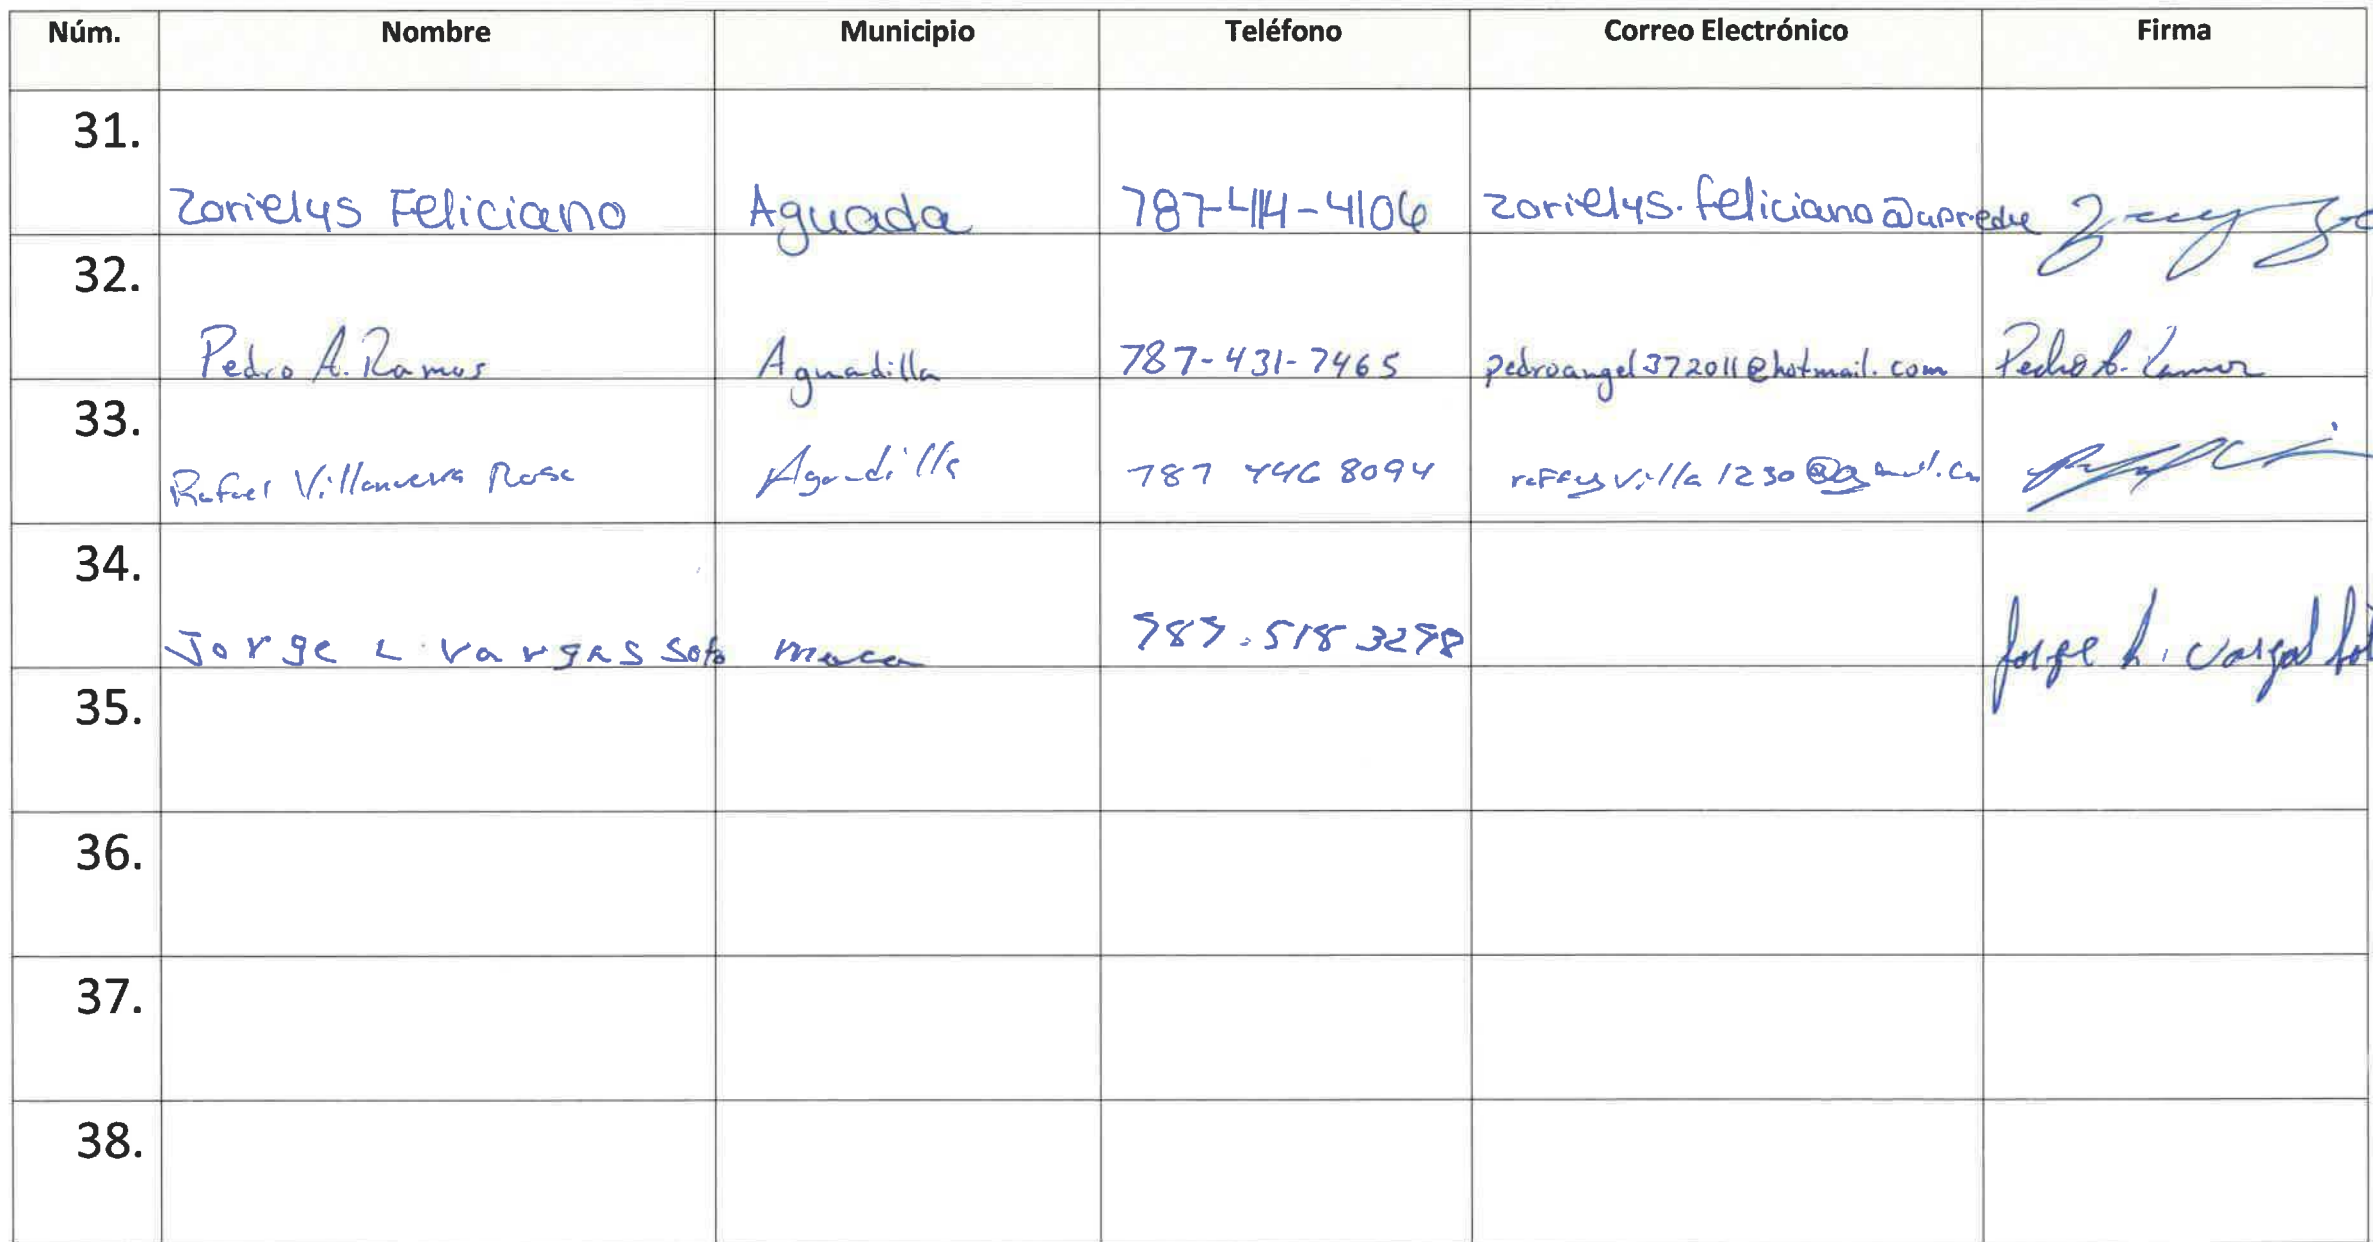 Núm. Nombre Municipio Teléfono Correo Electrónico Firma
31. Zorielys Feliciano Aguada 787-414-4106 zorielys.feliciano@upr.edu
32. Pedro A. Ramos Aguadilla 787-431-7465 pedroangel372011@hotmail.com Pedro A. Ramos
33. Rafael Villanueva Rosa Aguadilla 787 446 8094
34. Jorge L. Vargas Soto moca 787.518 3278 Jorge L. Vargas Sot
35.
36.
37.
38.